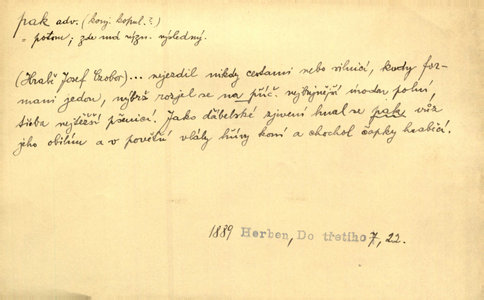 pak adv. (konj. kopul.?)
= potom; zde má význ. výsledný.
(Hrabě Josef Czobor)... nejezdil nikdy cestami nebo silnicí, kudy for-
mani jedou, nýbrž rozjel se na příč. nejbujnější úrodou polní,
třeba nejtěžší pšenicí. Jako ďábelské zjevení hnal se pak vůz
jeho obilím a v povětří vlály hřívy koní a chochol čapky hraběcí.
1889 Herben, Do třetího 7, 22.